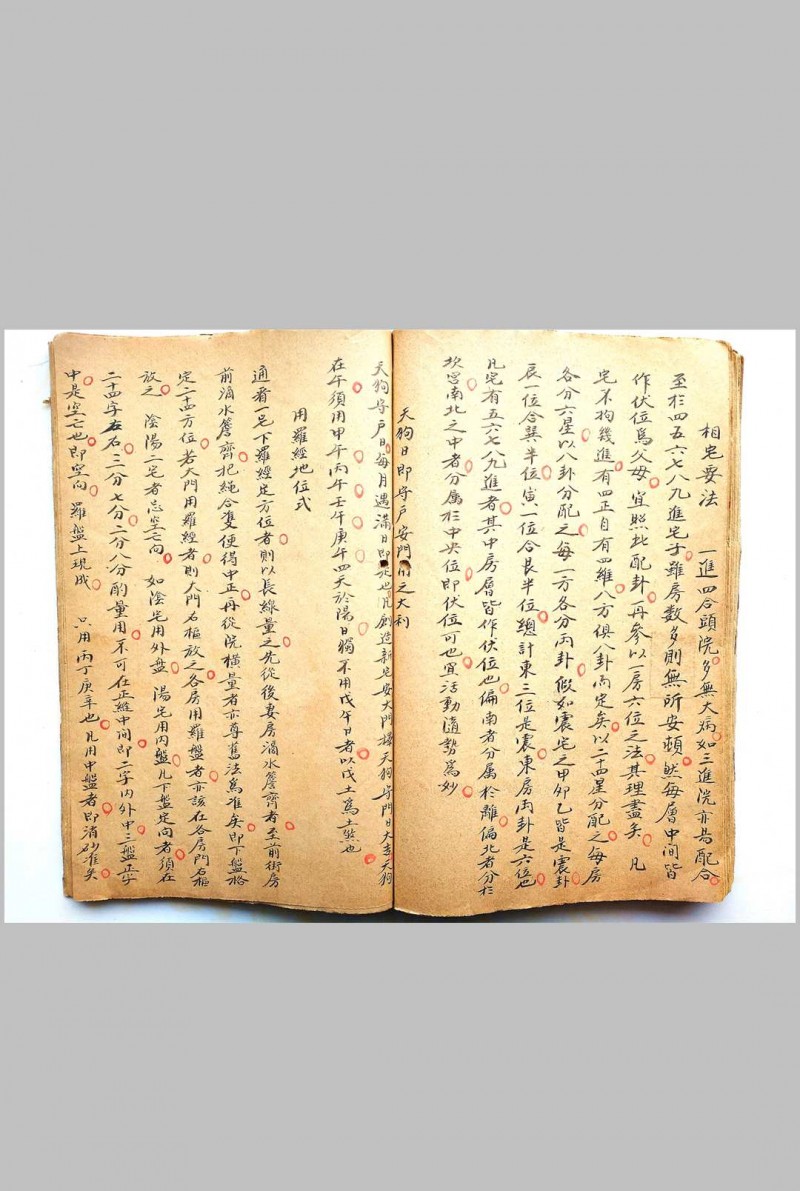 相宅要法　一進四合頭院多無大病如三進院亦為配合
至於四五六七八九進宅子雖房數多則無所安頓然每層中間皆
作伏位爲父母宜照此配卦再參以一房六位之法其理盡矣　凡
宅不拘幾進有四正自有四維八方俱八卦而定矣以二十四星分配之每房
各分六星以八卦分配之每一方各分丙卦假如震宅之甲卯乙皆是震卦
辰一位合巽半位寅一位合艮半位總計東三位是震東房丙卦是六位也
凡宅有五六七八九進者其中房層皆作伏位也偏南者分屬於離偏北者分於
坎宮南北之中者分屬於中央位即伏位可也宜活動隨勢爲妙
天狗日即守戶安門用之大利
天狗守戶日每月遇滿日即此也凡創造新宅安大門樓天狗守門日大吉天狗
在午須用甲午丙午壬午庚午四天於陽日獨不用戊午日者以戊土爲土煞也
用羅經地位式
通看一宅下羅經定方位者則以長線量之先從後妻房滴水簷齊者至前街房
前滴水簷齊把繩合雙便得中正再從院橫量者亦尊舊法爲准矣即下盤格
定二十四方位若大門用羅經者則大門右樞放之各房用羅盤者亦該在各房門右樞
放之　陰陽二宅者忌空亡向　如陰宅用外盤　陽宅用內盤凡下盤定向者須在
二十四字左右三分七分二分八分酌量用不可在正縫中間即二字內外中三盤正字
中是空亡也即空向　羅盤上現成　只用丙丁庚辛也凡用中盤者即消砂准矣